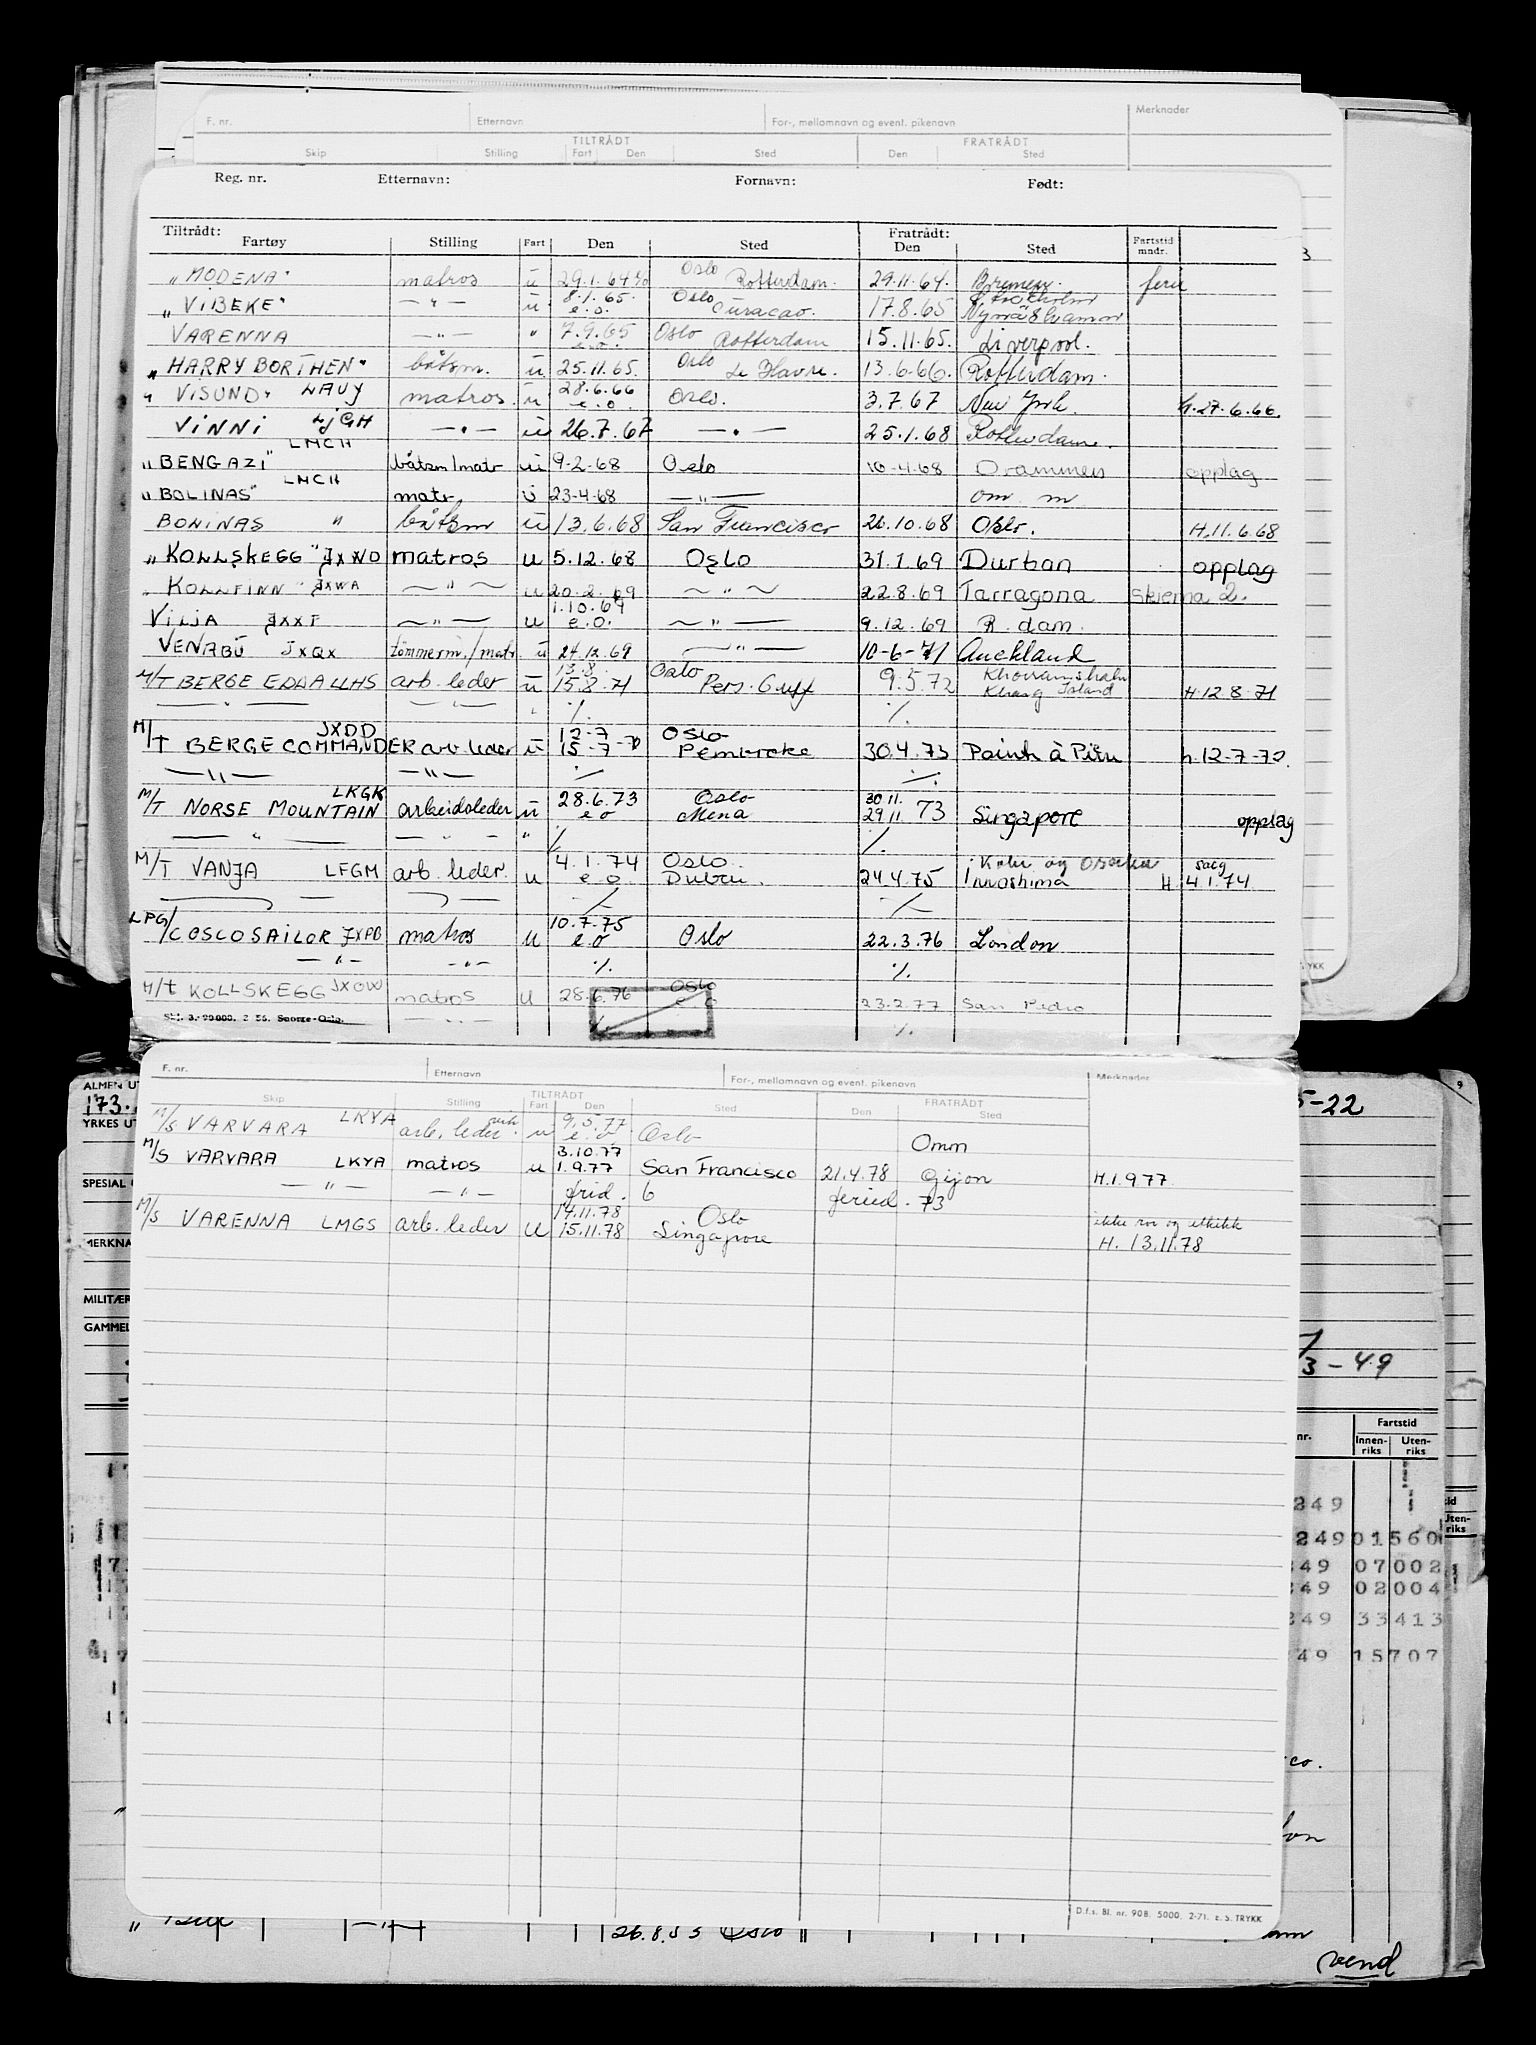 F. nr. Etternavn For-, mellomnavn og event. pikenavn Merknader
TILTRÅDT FRATRÅDT
Skip Stilling Fart Den Sted Den Sted
Reg. nr. Etternavn: Fornavn: Født:
Tiltrådt: Fratrådt:
Fartøy Stilling Fart Den Sted Den Sted Fartstid mndr.
"MODENA" matros u 29.1.64 Oslo Rotterdam. 29.11.64. Bremen. ferie
8.1.65. Oslo Stockholm
"VIBEKE" — " — u e.o. Curacao. 17.8.65 Nynäshamn
VARENNA — " — " 7.9.65 e.o. Oslo Rotterdam 15.11.65. Liverpool.
"HARRY BORTHEN" båtsm. u 25.11.65. Oslo Le Havre. 13.6.66. Rotterdam.
"VISUND" LAUY matros. u 28.6.66 e.o. Oslo. 3.7.67 New York. h.27.6.66.
VINNI LJGH — " — u 26.7.67 — " — 25.1.68 Rotterdam.
LMCH
"BENGAZI" båtsm/matr u 9-2-68 Oslo 10-4-68 Drammen opplag
LMCH
"BOLINAS" matr. u 23-4-68 — " — om. m
BONINAS " båtsm u 13.6.68 San Francisco 26.10.68 Oslo. H.11.6.68
"KOLLSKEGG" JXWD matros u 5.12.68 Oslo 31.1.69 Durban opplag
"KOLLFINN" JXWA — " — u 20.2.69 — " — 22.8.69 Tarragona Skjema 2.
1.10.69
VILJA JXXF — " — u e.o. — " — 9.12.69 R.dam.
VENABU JXQX tømmerm./matr. u 24.12.69 — " — 10-6-71 Auckland
13.8. Oslo Khorramshahr
M/T BERGE EDDA LLHS arb. leder u 15.8.71 Pers. Gulf 9.5.72 Kharg Island H.12.8.71
— " — — " — " ./. ./.
JXDD 12-7 Oslo
M/T BERGE COMMANDER arb. leder u 15-7-72 Pembroke 30.4.73 Point à Pitre h.12-7-72.
— " — — " — ./. ./.
LKGK 28.6.73 Oslo 30.11.
M/T NORSE MOUNTAIN arbeidsleder u e o Mena 29.11 73 Singapore opplag
— " — — " — " ./. ./.
4.1.74 Oslo. Kobe og Osaka sag
M/T VANJA LFGM arb. leder. u e.o. Dubai. 24.4.75 H 4.1.74
./. ./.
LPG/ 10.7.75
COSCOSAILOR JXPB matros u e.o Oslo 22.3.76 London
— " — — " — ./. ./.
M/t KOLLSKEGG JXOW matros u 28.6.76 Oslo e o 23.2.77 San Pedro
Skj. 3. 90000. 2 56. Saorze-Oslo. — " — ./. ./.
F. nr. Etternavn For-, mellomnavn og event. pikenavn Merknader
TILTRÅDT FRATRÅDT
Skip Stilling Fart Den Sted Den Sted
M/S VARVARA LKYA arb. leder u 9.5.77 e.o Oslo Omm
3.10.77
M/S VARVARA LKYA matros u 1.9.77 San Francisco 21.4.78 Gijon H.1.9.77
— " — — " — frid. 6 feried. 73
17.11.78 Oslo ikke ror og utkikk
M/S VARENNA LMGS arb. leder u 15.11.78 Singapore H. 13.11.78
D.f.s. Bl. nr. 908. 5000. 2-71. E. S. TRYKK
ALMEN UT
173.
YRKES UT
SPESIAL
MERKNA
MILITÆR
GAMMEL
5-22
3-49
Fartstid
nr. Innen-riks Uten-riks
249
249 01560
49 07002
49 02004
249 33413
49 15707
26.8.55 Oslo
vend